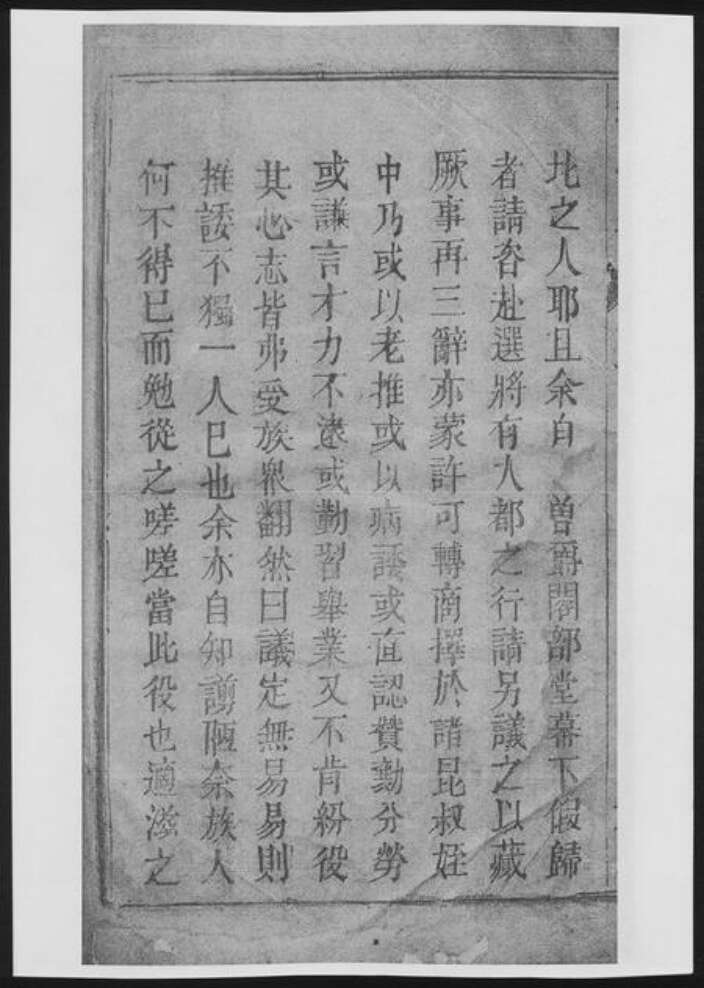 圠之人耶且余自 曽爵閣部堂幕下假歸
者請咨赴選將有大都之行請另議之以藏
厥事再三辭亦蒙許可轉商擇於諸昆叔姪
中乃或以老推或以病諉或直認贊勷分勞
或謙言才力不逮或勤習舉業又不肯紛役
其心志皆弗受族衆翻然曰議定無易易則
推諉不獨一人巳也余亦自知謭陋奈族人
何不得巳而勉從之嗟嗟當此役也適滋之